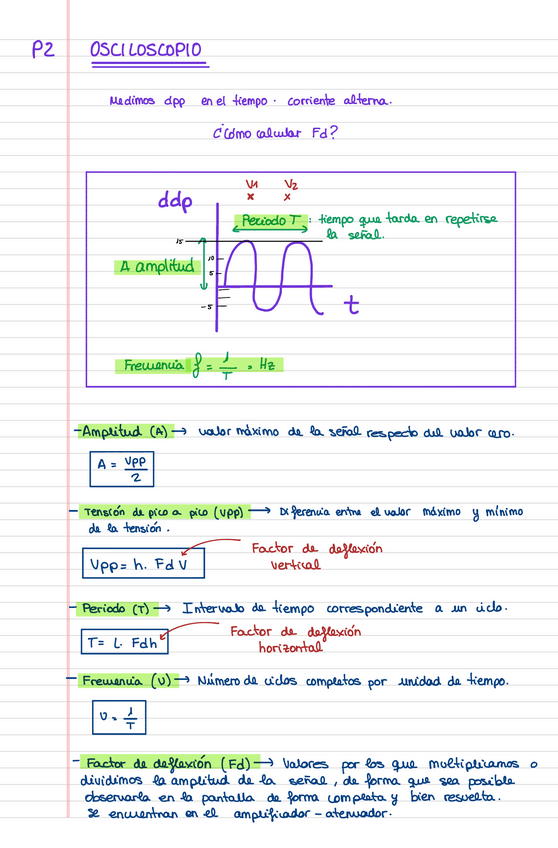 P2 OSCILOSCOPIO
Medimos dpp en el tiempo. corriente alterna.
¿Cómo calcular Fd?
V1 V2
x x
ddp
Periodo T : tiempo que tarda en repetirse
la señal.
15
10
A amplitud
5
-5
t
Frecuencia f = 1/T = Hz
- Amplitud (A) → valor máximo de la señal respecto del valor cero.
A = Vpp/2
- Tensión de pico a pico (Vpp) → Diferencia entre el valor máximo y mínimo
de la tensión.
Factor de deflexión
vertical
Vpp = h. Fd V
- Periodo (T) → Intervalo de tiempo correspondiente a un ciclo.
Factor de deflexión
horizontal
T = L. Fdh
- Frecuencia (υ) → Número de ciclos completos por unidad de tiempo.
υ = 1/T
- Factor de deflexión (Fd) → Valores por los que multiplicamos o
dividimos la amplitud de la señal, de forma que sea posible
observarla en la pantalla de forma completa y bien resuelta.
Se encuentran en el amplificador - atenuador.